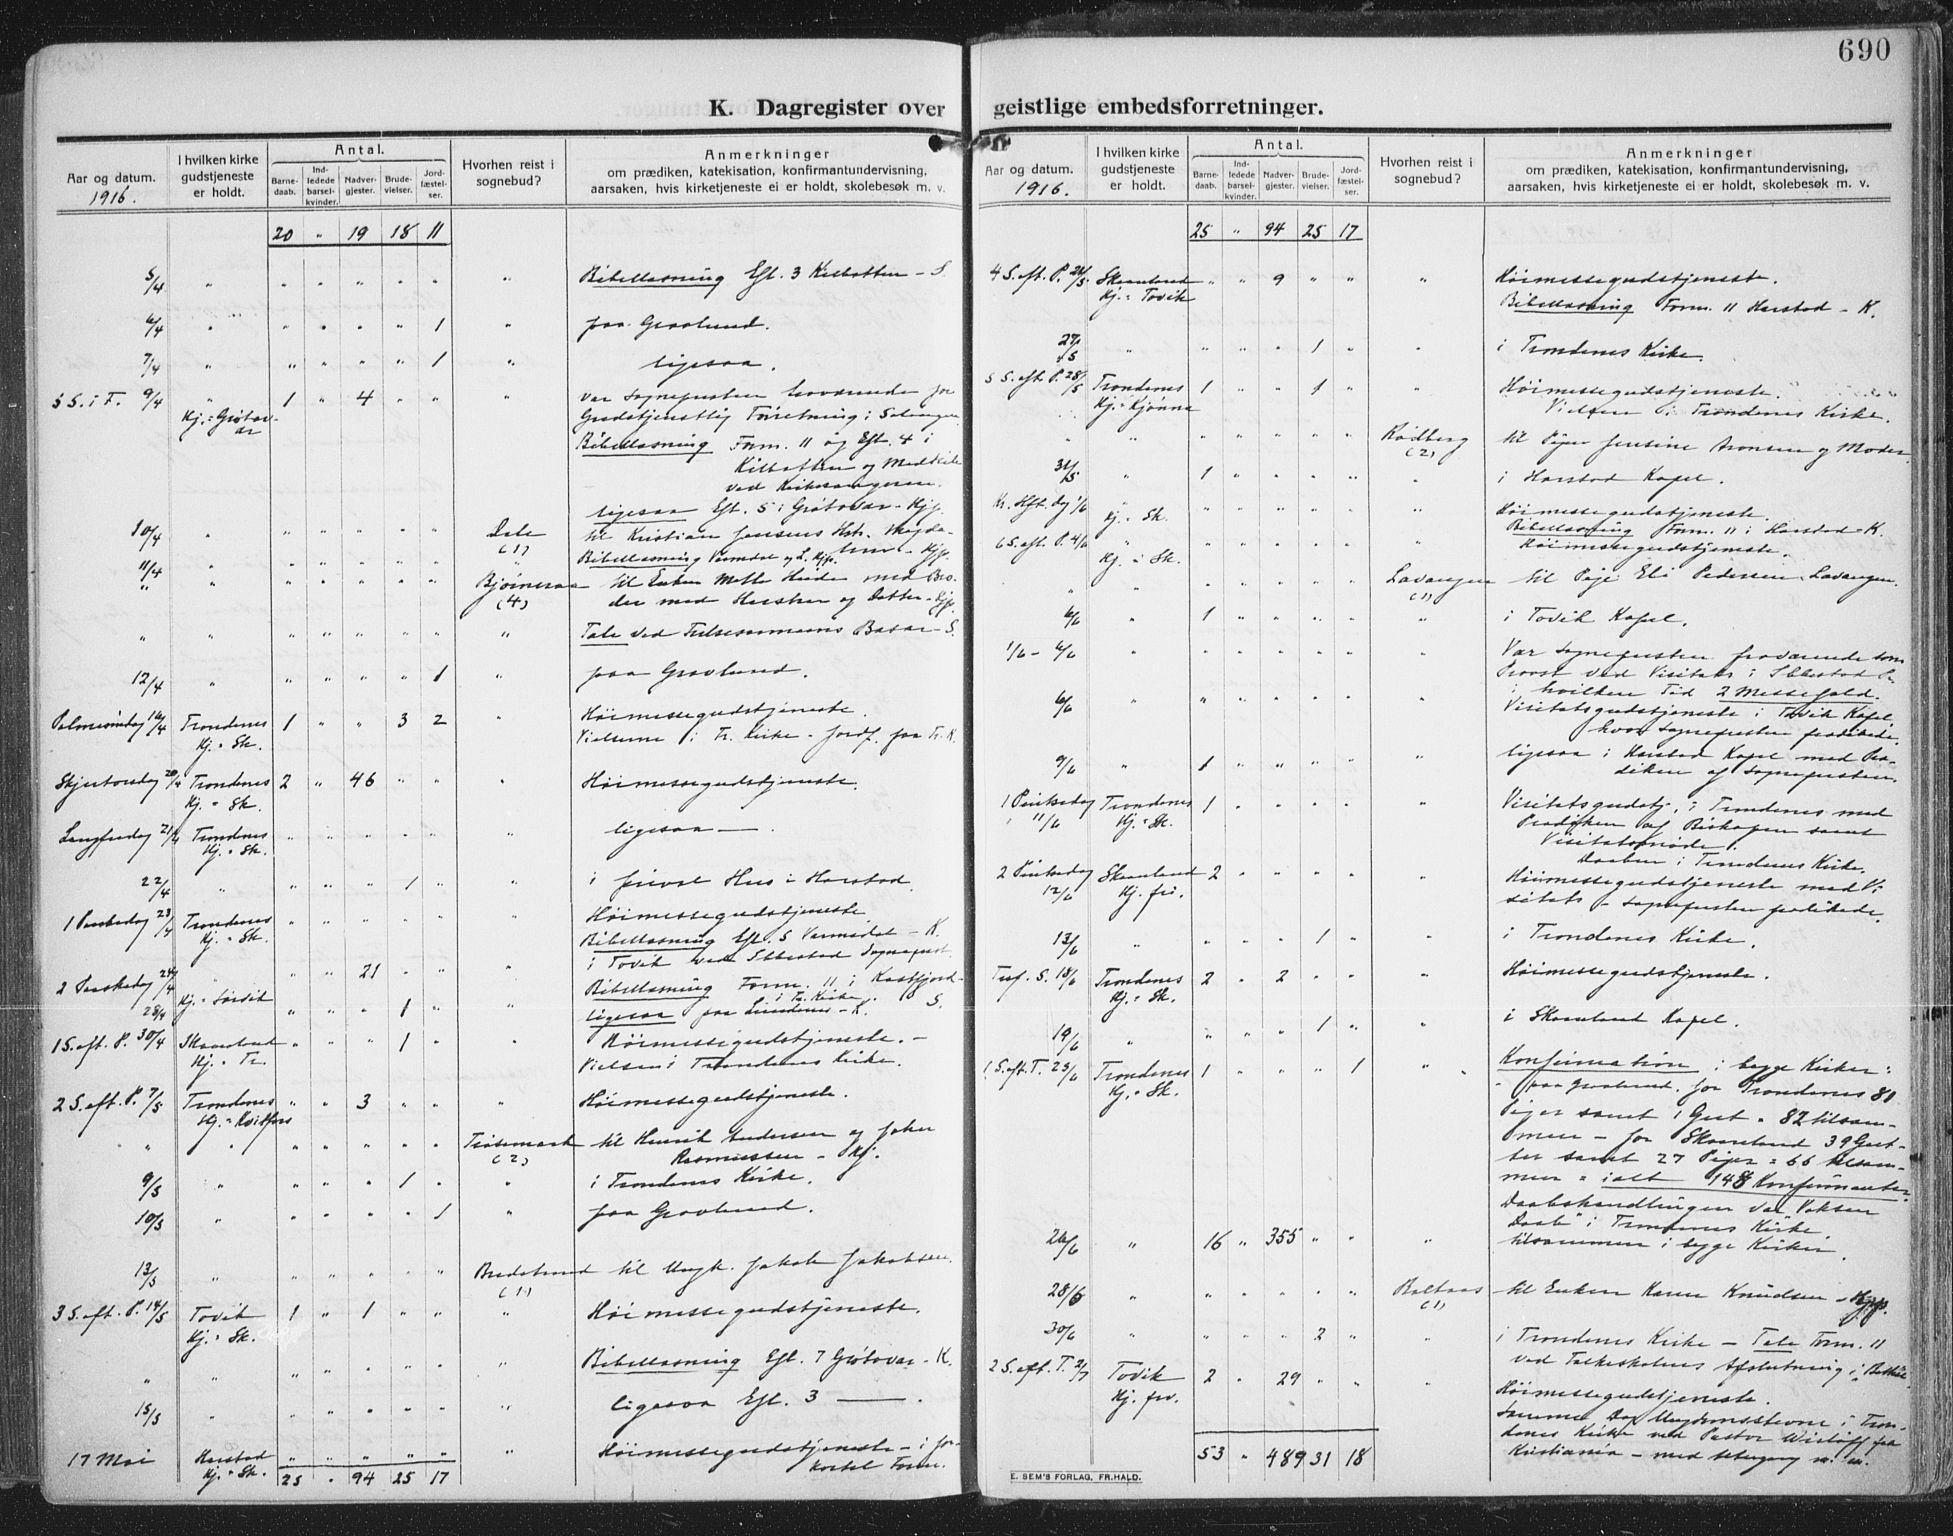 690
K. Dagregister over geistlige embedsforretninger.
Aar og datum.
1916.
I hvilken kirke gudstjeneste er holdt.
Antal.
Barnedaab.
Indledede barselkvinder.
Nadvergjester.
Brudevielser.
Jordfæstelser.
Hvorhen reist i sognebud?
Anmerkninger
om prædiken, katekisation, konfirmantundervisning,
aarsaken, hvis kirketjeneste ei er holdt, skolebesøk m. v.
20 " 19 18 11
5/4 " " " " " " " Bibellæsning Eft. 3 Kilbotten – S.
6/4 " " " " " 1 " paa Gravlund.
7/4 " " " " " 1 " ligesaa.
5 S. i F. 9/4 " 1 " 4 " " " Var Sognepresten fraværende for
Kj. = Grøtavær Gudstjenstlig Forretning i Salangen
Bibellæsning Form. 11 og Eft. 4 i
Kilbotten og
ved Kirkesangeren.
ligesaa Eft. 5 i Grøtavær – Hjp.
10/4 " " " " " " Dale (1) til Kristian Jensens Hstr.
11/4 Bibellæsning
" " " " " " " Bjørneraa (4) til Enken
der med Hustru og Datter – Hjp.
" " " " " " " " Tale ved Basar – S.
12/4 " " " " " 1 " paa Gravlund.
Palmesøndag 16/4 Trondenes 1 " " 3 2 Høimessegudstjeneste.
Kj. = Sk. Vielserne i Tr. Kirke – Jordf. paa Tr. K.
Skjærtorsdag 20/4 Trondenes 2 " 46 " " " Høimessegudstjeneste.
Kj. = Sk.
Langfredag 21/4 Trondenes " " " " " " ligesaa — .
Kj. = Sk.
22/4 " " " " 1 " " i privat Hus i Harstad.
1 Paaskedag 23/4 Trondenes " " " " " " Høimessegudstjeneste
Kj. = Sk. Bibellæsning Eft. 5 – K.
2 Paaskedag 24/4 " " " 21 " " " i Tovik ved Ibbestad Sogneprest
Kj. = Sørvik Bibellæsning Form. 11 i Kasfjord –
i Tr. Kirke. S.
28/4 " " " 1 " " ligesaa paa – K.
1 S. eft. P. 30/4 Skaanland " " " 1 " " Høimessegudstjeneste. –
Kj. = Tr. Vielsen i Trondenes Kirke.
2 S. eft. P. 7/5 Trondenes " " 3 " " " Høimessegudstjeneste.
Kj. = Kvitfors
" " " " " " " (2) til Henrik Andersen og Johan
Rasmussen – Hj.
9/5 " " " " 1 " " i Trondenes Kirke.
10/5 " " " " " 1 " paa Gravlund.
13/5 " " " " " " (1) til Ungk. Jakob Jakobsen.
3 S. eft. P. 14/5 Tovik 1 " 1 " " " Høimessegudstjeneste.
Kj. = Sk.
" " " " " " " Bibellæsning Eft. 7 Grøtavær – K.
15/5 " " " " " " " ligesaa Eft. 3 — .
17 Mai Harstad " " " " " " Høimessegudstjeneste – i for-
Kj. = Sk. kortet Form.
25 " 94 25 17
Aar og datum.
1916.
I hvilken kirke gudstjeneste er holdt.
Antal.
Barnedaab.
Indledede barselkvinder.
Nadvergjester.
Brudevielser.
Jordfæstelser.
Hvorhen reist i sognebud?
Anmerkninger
om prædiken, katekisation, konfirmantundervisning,
aarsaken, hvis kirketjeneste ei er holdt, skolebesøk m. v.
25 " 94 25 17
4 S. eft. P. 21/5 Skaanland " " 9 " " " Høimessegudstjeneste.
Kj. = Tovik Bibellæsning Form. 11 Harstad – K.
27/5 " " " " 1 " " i Trondenes Kirke.
5 S. eft. P. 28/5 Trondenes 1 " " 1 " " Høimessegudstjeneste.
Kj. = Kjønna Vielsen i Trondenes Kirke.
" " " " " " " Rødberg (2) til Pigen Jensine Aronsen og Moder.
31/5 " 1 " " " " " i Harstad Kapel.
Kr. Hft. dag 1/6 " " " " " " " Høimessegudstjeneste.
Kj. = Sk. Bibellæsning Form. 11 i Harstad – K.
6 S. eft. P. 4/6 " " " " " " " Høimessegudstjeneste.
Kj. = Sk.
" " " " " " " Lavangen (1) til Pige Eli Pedersen Lavangen.
6/6 " 1 " " " " " i Tovik Kapel.
1/6 – 6/6 " " " " " " Var Sognepresten fraværende som
Provst ved Visitats i Ibbestad Pr.
i hvilken Tid 2 Messefald.
6/6 " " " " " " Visitatsgudstjeneste i Tovik Kapel,
hvor Sognepresten prædikede.
9/6 " 1 " " " " " ligesaa i Harstad Kapel med Præ-
diken af Sognepresten.
1 Pinksedag 11/6 Trondenes 1 " " " " " Visitatsgudstj. i Trondenes med
Kj. = Sk. Prædiken af Biskopen samt
Visitatsmøde.
Daaben i Trondenes Kirke.
2 Pinksedag 12/6 Skaanland 2 " " " " " Høimessegudstjeneste med Vi-
Kj. fri. sitats – Sognepresten prædikede.
13/6 " " " " 1 " " i Trondenes Kirke.
Tref. S. 18/6 Trondenes 2 " 2 " " " Høimessegudstjeneste.
Kj. = Sk.
19/6 " " " " 1 " " i Skaanland Kapel.
1 S. eft. T. 23/6 Trondenes 1 " " " 1 " Konfirmation i begge Kirker:
Kj. = Sk. – paa Gravlund. for Trondenes 81
Piger samt 1 Gut = 82 tilsam-
men – for Skaanland 39 Gut-
ter samt 27 Piger = 66 tilsam-
men = ialt 148 Konfirmanter.
Daabshandlingen var "Voksen
Daab" i Trondenes Kirke.
26/6 " 16 " 355 " " " tilsammen i begge Kirker.
28/6 " " " " " " (1) til Enken Karen Knudsen – Hjp.
30/6 " " " " 2 " " i Trondenes Kirke – Tale Form. 11
ved Folkeskolens Afslutning i
2 S. eft. T. 2/7 Tovik 2 " 29 " " " Høimessegudstjeneste.
Kj. fri. Samme Dag Ungdomsstevne i Tron-
denes Kirke ved Pastor Wisløff fra
Kristiania – med m. m.
53 " 489 31 18
E. SEM'S FORLAG, FR.HALD.